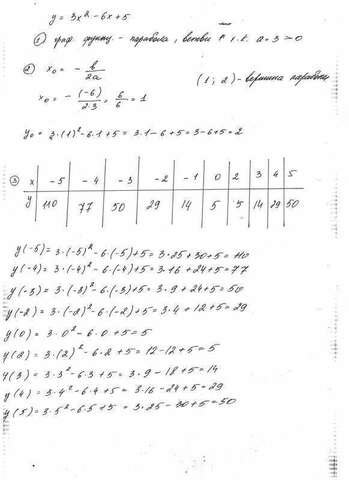 y = 3x² - 6x + 5
① граф. функц. - парабола, ветви ↑ т.к. a = 3 > 0
② x₀ = - b/2a
(1; 2) - вершина параболы
x₀ = - (-6)/2·3 = 6/6 = 1
y₀ = 3·(1)² - 6·1 + 5 = 3·1 - 6 + 5 = 3 - 6 + 5 = 2
③ x | -5 | -4 | -3 | -2 | -1 | 0 | 2 | 3 | 4 | 5
y | 110 | 77 | 50 | 29 | 14 | 5 | 5 | 14 | 29 | 50
y(-5) = 3·(-5)² - 6·(-5) + 5 = 3·25 + 30 + 5 = 110
y(-4) = 3·(-4)² - 6·(-4) + 5 = 3·16 + 24 + 5 = 77
y(-3) = 3·(-3)² - 6·(-3) + 5 = 3·9 + 24 + 5 = 50
y(-2) = 3·(-2)² - 6·(-2) + 5 = 3·4 + 12 + 5 = 29
y(0) = 3·0² - 6·0 + 5 = 5
y(2) = 3·(2)² - 6·2 + 5 = 12 - 12 + 5 = 5
y(3) = 3·3² - 6·3 + 5 = 3·9 - 18 + 5 = 14
y(4) = 3·4² - 6·4 + 5 = 3·16 - 24 + 5 = 29
y(5) = 3·5² - 6·5 + 5 = 3·25 - 30 + 5 = 50